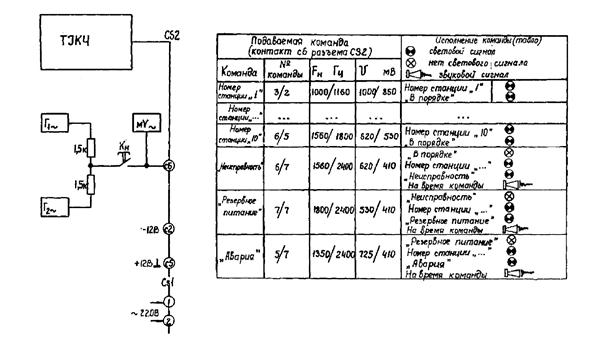 ТЭКЧ
CS2
Г1~
mV~
Кн
1,5к
1,5к
Г2~
с6
-12В
с2
+12В ⊥
с5
CS1
1
~220В
2
Подаваемая команда
(контакт с6 разъема CS2)
Исполнение команды (табло)
световой сигнал
нет светового сигнала
звуковой сигнал
Команда
№ команды
Fн Гц
U мВ
Номер станции „1"
3/2
1000/1160
1000/850
Номер станции „1"
„В порядке"
Номер станции „..."
...
...
...
...
Номер станции „10"
6/5
1560/1800
620/530
Номер станции „10"
„В порядке"
„Неисправность"
6/7
1560/2400
620/410
„В порядке"
Номер станции „..."
„Неисправность"
На время команды
„Резервное питание"
7/7
1800/2400
530/410
„Неисправность"
Номер станции „..."
„Резервное питание"
На время команды
„Авария"
5/7
1350/2400
725/410
„Резервное питание"
Номер станции „..."
„Авария"
На время команды